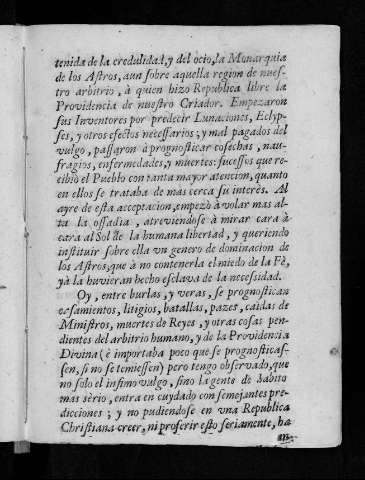 tenida de la credulidad, y del ocio, la Monarquia
de los Astros, aun sobre aquella region de nues-
tro arbitrio, à quien hizo Republica libre la
Providencia de nuestro Criador. Empezaron
sus Inventores por predecir Lunaciones, Eclyp-
ses, y otros efectos necessarios; y mal pagados del
vulgo, passaron à prognosticar cosechas, nau-
fragios, enfermedades, y muertes: sucessos que re-
cibiò el Pueblo con tanta mayor atencion, quanto
en ellos se trataba de mas cerca su interès. Al
ayre de esta acceptacion, empezò à volar mas al-
ta la ossadia, atreviendose à mirar cara à
cara al Sol de la humana libertad, y queriendo
instituir sobre ella vn genero de dominacion de
los Astros, que à no contenerla el miedo de la Fè,
yà la huvieran hecho esclava de la necessidad.
Oy, entre burlas, y veras, se prognostican
casamientos, litigios, batallas, pazes, caìdas de
Ministros, muertes de Reyes, y otras cosas pen-
dientes del arbitrio humano, y de la Providencia
Divina (è importaba poco que se prognosticas-
sen, si no se temiessen) pero tengo observado, que
no solo el infimo vulgo, sino la gente de habito
mas sèrio, entra en cuydado con semejantes pre-
dicciones; y no pudiendose en vna Republica
Christiana creer, ni proferir esto seriamente, ha